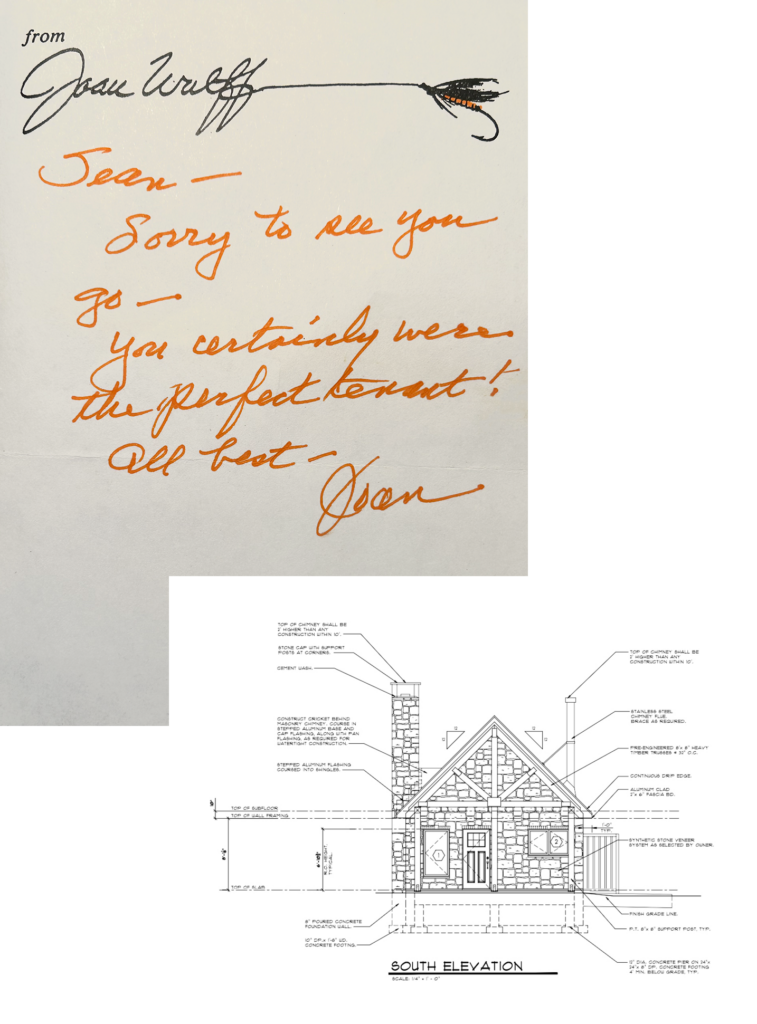 from
Joan Wulff
Jean —
Sorry to see you
go —
you certainly were
the perfect tenant!
All best —
Joan
TOP OF CHIMNEY SHALL BE
2' HIGHER THAN ANY
CONSTRUCTION WITHIN 10'.
STONE CAP WITH SUPPORT
POSTS AT CORNERS.
CEMENT WASH.
CONSTRUCT CRICKET BEHIND
MASONRY CHIMNEY. COURSE IN
STEPPED ALUMINUM BASE AND
CAP FLASHING, ALONG WITH PAN
FLASHING, AS REQUIRED FOR
WATERTIGHT CONSTRUCTION.
STEPPED ALUMINUM FLASHING
COURSED INTO SHINGLES.
TOP OF SUBFLOOR
TOP OF WALL FRAMING
R.O. HEIGHT,
TYPICAL
TOP OF SLAB
8" POURED CONCRETE
FOUNDATION WALL.
10" DP. x 1'-8" WD.
CONCRETE FOOTING.
12
12
12
12
1
2
TOP OF CHIMNEY SHALL BE
2' HIGHER THAN ANY
CONSTRUCTION WITHIN 10'.
STAINLESS STEEL
CHIMNEY FLUE.
BRACE AS REQUIRED.
PRE-ENGINEERED 8"x 8" HEAVY
TIMBER TRUSSES @ 32" O.C.
CONTINUOUS DRIP EDGE.
ALUMINUM CLAD
2"x 6" FASCIA BD.
1'-0"
TYP.
SYNTHETIC STONE VENEER
SYSTEM AS SELECTED BY OWNER.
FINISH GRADE LINE.
P.T. 8"x 8" SUPPORT POST, TYP.
12" DIA. CONCRETE PIER ON 24"x
24"x 8" DP. CONCRETE FOOTING
4' MIN. BELOW GRADE, TYP.
SOUTH ELEVATION
SCALE: 1/4" = 1'-0"